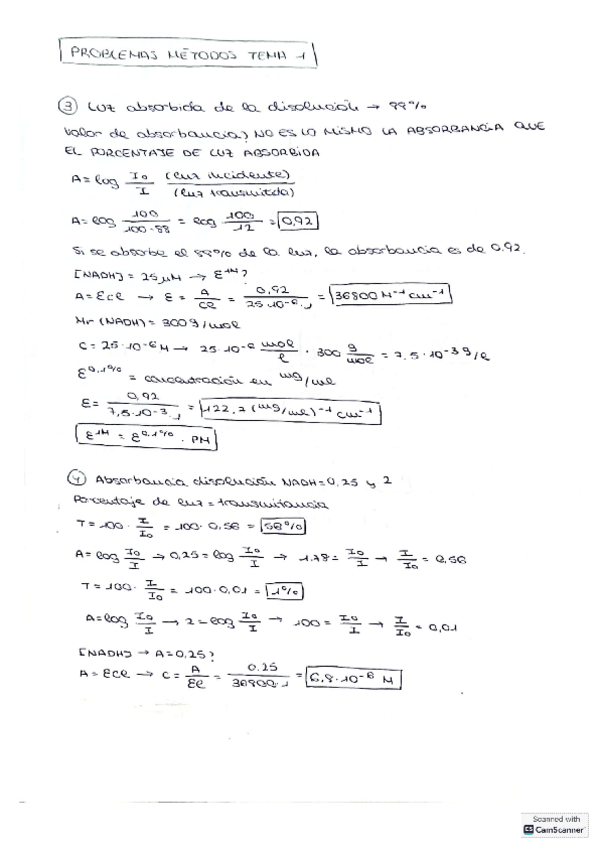 PROBLEMAS MÉTODOS TEMA 1
③ Luz absorbida de la disolución → 88%
Valor de absorbancia, NO ES LO MISMO LA ABSORBANCIA QUE
EL PORCENTAJE DE LUZ ABSORBIDA
A = log I₀/I (luz incidente)/(luz transmitida)
A = log 100/100-88 = log 100/12 = 0,92
Si se absorbe el 88% de la luz, la absorbancia es de 0.92.
[NADH] = 25 μM → ε¹ᴹ?
A = εcl → ε = A/cl = 0,92/25·10⁻⁶·1 = 36800 M⁻¹ cm⁻¹
Mr (NADH) = 300 g/mol
C = 25·10⁻⁶ M → 25·10⁻⁶ mol/l · 300 g/mol = 7,5·10⁻³ g/l
ε⁰·¹% = concentración en mg/ml
ε = 0,92/7,5·10⁻³·1 = 122,7 (mg/ml)⁻¹ cm⁻¹
ε¹ᴹ = ε⁰·¹% · PM
④ Absorbancia disolución NADH = 0,25 y 2
Porcentaje de luz = transmitancia
T = 100 · I/I₀ = 100 · 0,56 = 56%
A = log I₀/I → 0,25 = log I₀/I → 1.78 = I₀/I → I/I₀ = 0,56
T = 100 · I/I₀ = 100 · 0,01 = 1%
A = log I₀/I → 2 = log I₀/I → 100 = I₀/I → I/I₀ = 0,01
[NADH] → A = 0,25?
A = εcl → C = A/εl = 0.25/36800·1 = 6,8·10⁻⁶ M
Scanned with
CS CamScanner